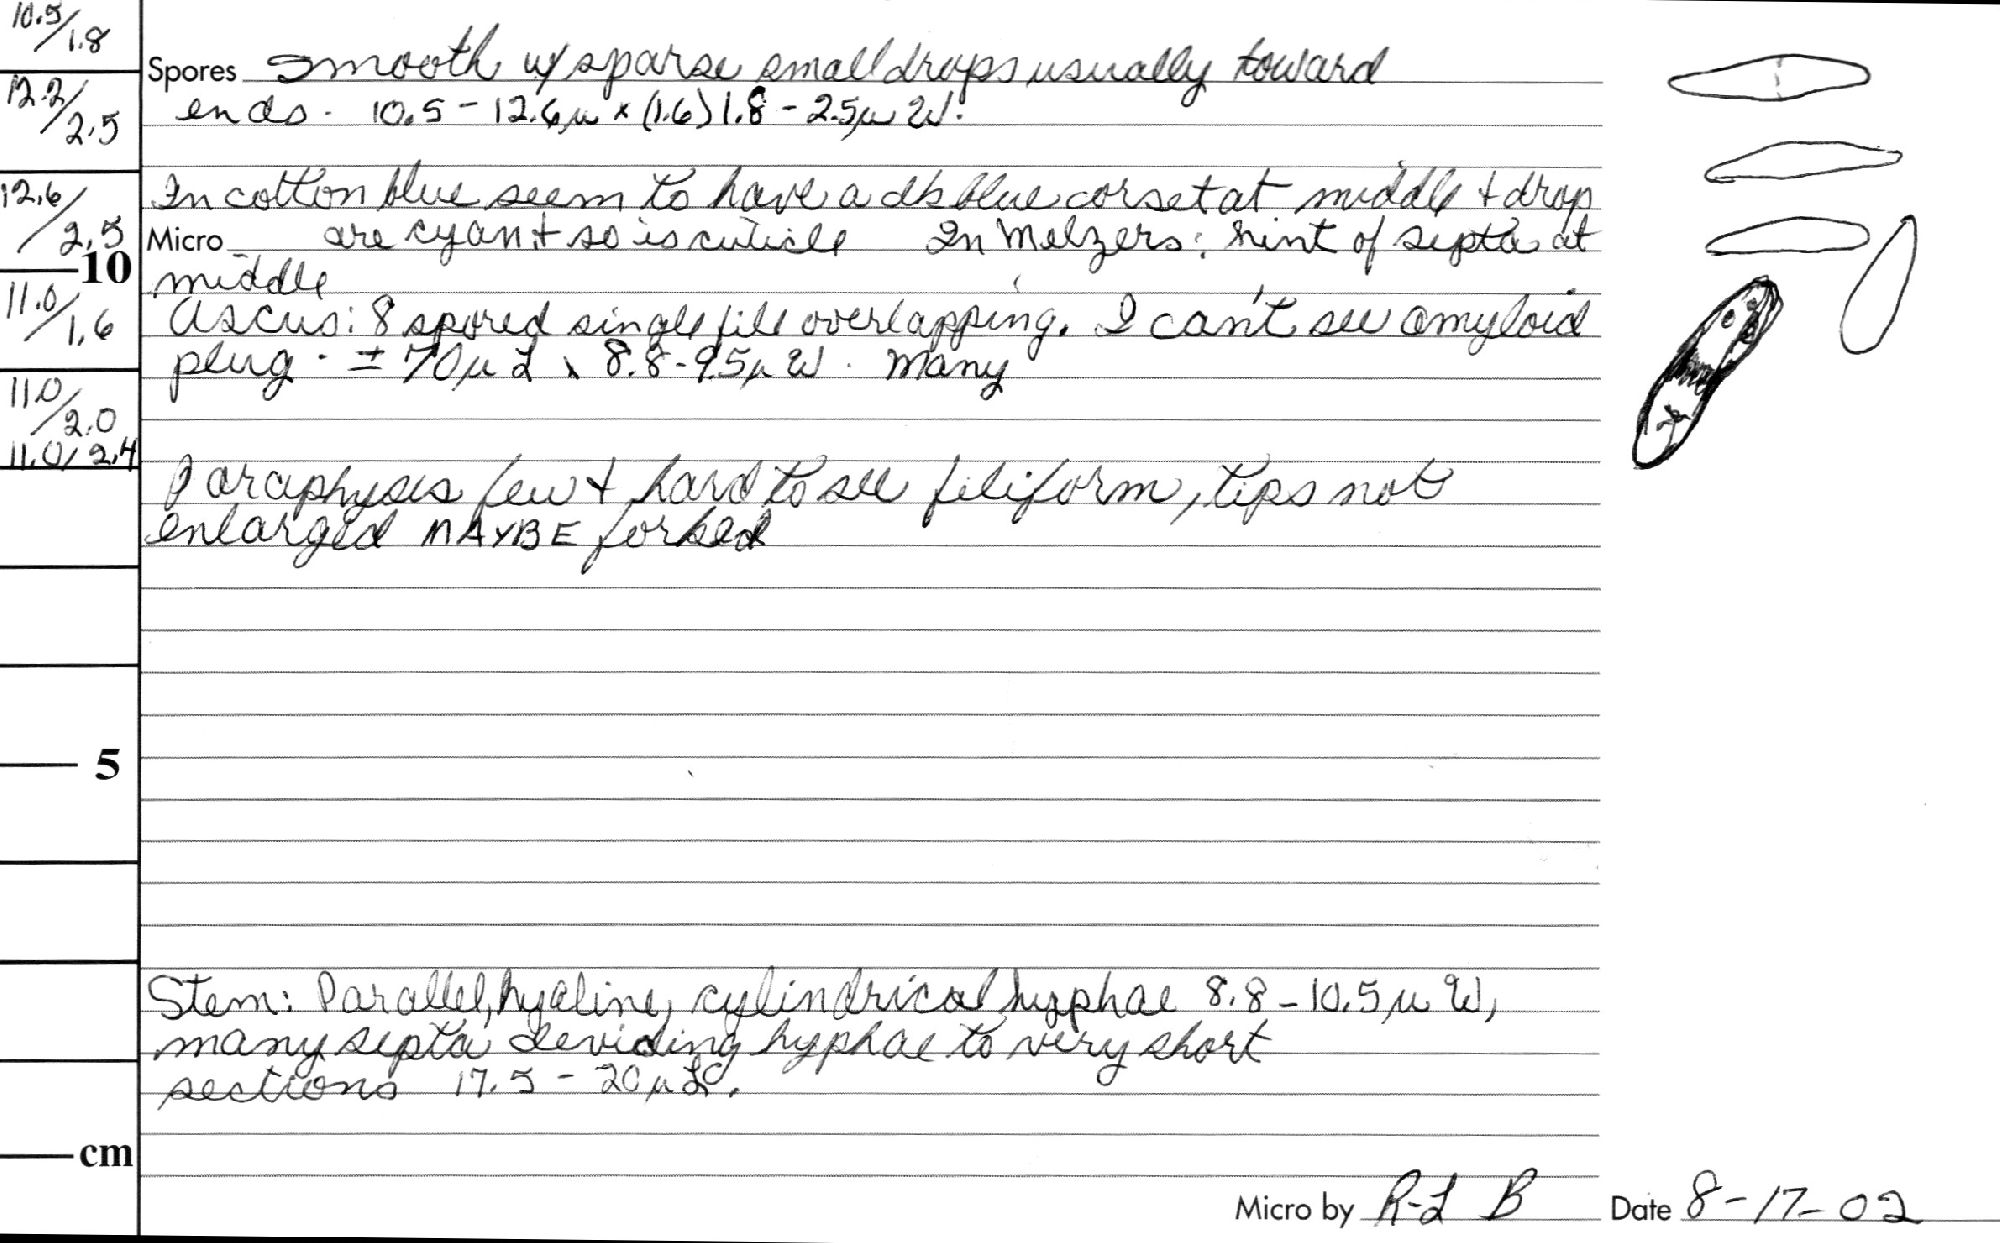 10.5/1.8
12.2/2.5
12.6/2.5
10
11.0/1.6
11.0/2.0
11.0/2.4
5
cm
Spores Smooth w/ sparse small drops usually toward
ends. 10.5 - 12.6µ x (1.6) 1.8 - 2.5µ W.
In cotton blue seem to have a dk blue corset at middle + drop
Micro are cyan + so is cuticle In Melzers: hint of septa at
middle
Ascus: 8 spored single file overlapping. I can't see amyloid
plug. ± 70µ L x 8.8-9.5µ W. Many
Paraphyses few + hard to see filiform, tips not
enlarged MAYBE forked
Stem: Parallel, hyaline, cylindrical hyphae 8.8 - 10.5µ W,
many septa deviding hyphae to very short
sections 17.5 - 20µ L.
Micro by R-L B Date 8-17-02